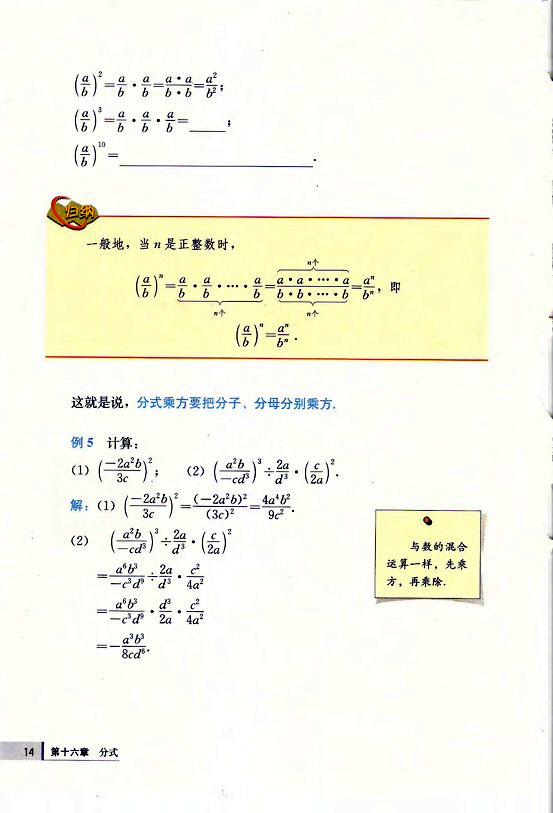 (a/b)²=a/b·a/b=a·a/b·b=a²/b²;
(a/b)³=a/b·a/b·a/b=____;
(a/b)¹⁰=____.
归纳
一般地，当 n 是正整数时，
n个
(a/b)ⁿ=a/b·a/b·…·a/b=a·a·…·a/b·b·…·b=aⁿ/bⁿ，即
n个 n个
(a/b)ⁿ=aⁿ/bⁿ.
这就是说，分式乘方要把分子、分母分别乘方.
例5 计算：
(1) (−2a²b/3c)²； (2) (a²b/−cd³)³÷2a/d³·(c/2a)².
解：(1) (−2a²b/3c)²=(−2a²b)²/(3c)²=4a⁴b²/9c².
(2) (a²b/−cd³)³÷2a/d³·(c/2a)²
=a⁶b³/−c³d⁹÷2a/d³·c²/4a²
=a⁶b³/−c³d⁹·d³/2a·c²/4a²
=−a³b³/8cd⁶.
与数的混合
运算一样，先乘
方，再乘除.
14 第十六章 分式